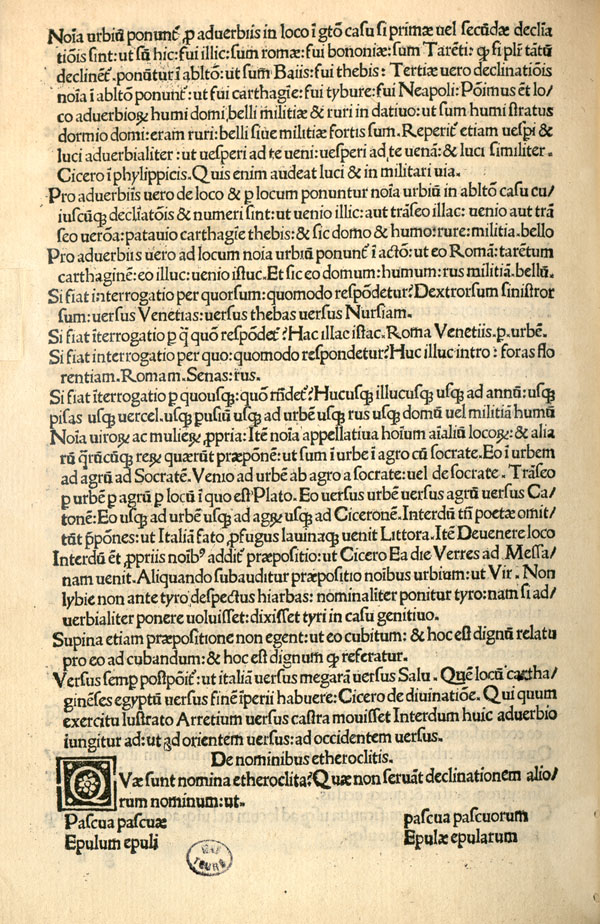 Noīa urbiū ponunt᷑ ꝑ aduerbiis in loco ī gt̄o casu si primæ uel secūdæ declīa/
tiōis sint: ut sū hic: fui illic: sum romæ: fui bononiæ: sum Tarēti: ꝙ si plr̄ tātū
declinēt᷑. ponūtur ī abltō: ut sum Baiis: fui thebis: Tertiæ uero declinatiōis
noīa ī abltō ponunt᷑: ut fui carthagīe: fui tybure: fui Neapoli: Pōimus ēt lo/
co aduerbioꝝ humi domi, belli militiæ & ruri in datiuo: ut sum humi stratus
dormio domi: eram ruri: belli siue militiæ fortis sum. Reperit᷑ etiam uespi &
luci aduerbialiter: ut uesperi ad te ueni: uesperi ad te uenā: & luci similiter.
Cicero ī phylippicis. Quis enim audeat luci & in militari uia.
Pro aduerbiis uero de loco & ꝑ locum ponuntur noīa urbiū in abltō casu cu/
iuscūqꝫ declīatōis & numeri sint: ut uenio illic: aut trāseo illac: uenio aut trā
seo uerōa: patauio carthagīe thebis: & sic domo & humo: rure: militia. bello
Pro aduerbiis uero ad locum noīa urbiū ponunt᷑ ī actō: ut eo Romā: tarētum
carthaginē: eo illuc: uenio istuc. Et sic eo domum: humum: rus militiā. bellū.
Si fiat interrogatio per quorsum: quomodo respōdetur? Dextrorsum sinistror
sum: uersus Venetias: uersus thebas uersus Nursiam.
Si fiat īterrogatio ꝑ q̄ quō respōdet᷑? Hac illac istac. Roma Venetiis. ꝑ. urbē.
Si fiat interrogatio per quo: quomodo respondetur? Huc illuc intro: foras flo
rentiam. Romam. Senas: rus.
Si fiat īterrogatio ꝑ quousqꝫ: quō rn̄det᷑? Hucusqꝫ illucusqꝫ usqꝫ ad annū: usqꝫ
pisas usqꝫ uercel. usqꝫ pusiū usqꝫ ad urbē usqꝫ rus usqꝫ domū uel militiā humū
Noīa uiroꝝ ac mulieꝝ ꝓpria: Itē noīa appellatiua hoīum aīaliū locoꝝ: & alia
rū q̄rūcūqꝫ reꝝ quærūt præponē: ut sum ī urbe ī agro cū socrate. Eo ī urbem
ad agrū ad Socratē. Venio ad urbē ab agro a socrate: uel de socrate. Trāseo
ꝑ urbē ꝑ agrū ꝑ locū ī quo est Plato. Eo uersus urbē uersus agrū uersus Ca/
tonē: Eo usqꝫ ad urbē usqꝫ ad agꝝ usqꝫ ad Ciceronē. Interdū tn̄ poetæ omit/
tūt ꝑpōnes: ut Italiā fato ꝓfugus lauinaqꝫ uenit Littora. Itē Deuenere loco
Interdū ēt ꝓpriis noībꝰ addit᷑ præpositio: ut Cicero Ea die Verres ad Messa/
nam uenit. Aliquando subauditur præpositio noībus urbium: ut Vir. Non
lybie non ante tyro despectus hiarbas: nominaliter ponitur tyro: nam si ad/
uerbialiter ponere uoluisset: dixisset tyri in casu genitiuo.
Supina etiam præpositione non egent: ut eo cubitum: & hoc est dignū relatu
pro eo ad cubandum: & hoc est dignum ꝙ referatur.
Versus semꝑ postpōit᷑: ut italiā uersus megarā uersus Salu. Quē locū cartha/
ginēses egyptū uersus finē īperii habuere: Cicero de diuinatiōe. Qui quum
exercitu lustrato Arretium uersus castra mouisset Interdum huic aduerbio
iungitur ad: ut ad orientem uersus: ad occidentem uersus.
De nominibus etheroclitis.
QVæ sunt nomina etheroclita? Quæ non seruāt declinationem alio/
rum nominum: ut.
Pascua pascuæ pascua pascuorum
Epulum epuli Epulæ epularum